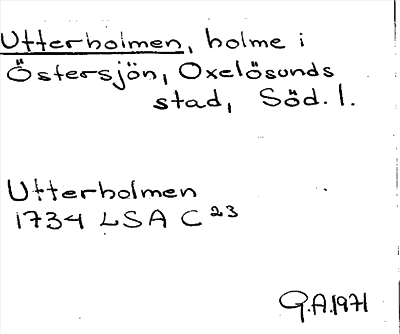 Utterholmen, holme i
Östersjön, Oxelösunds
stad, Söd. l.
Utterholmen
1734 LSA C 23
G.A. 1971